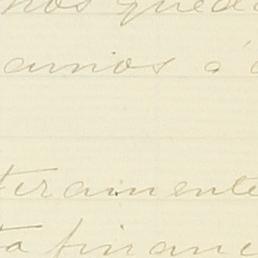 nos queda
amos á
teramente
ta financ